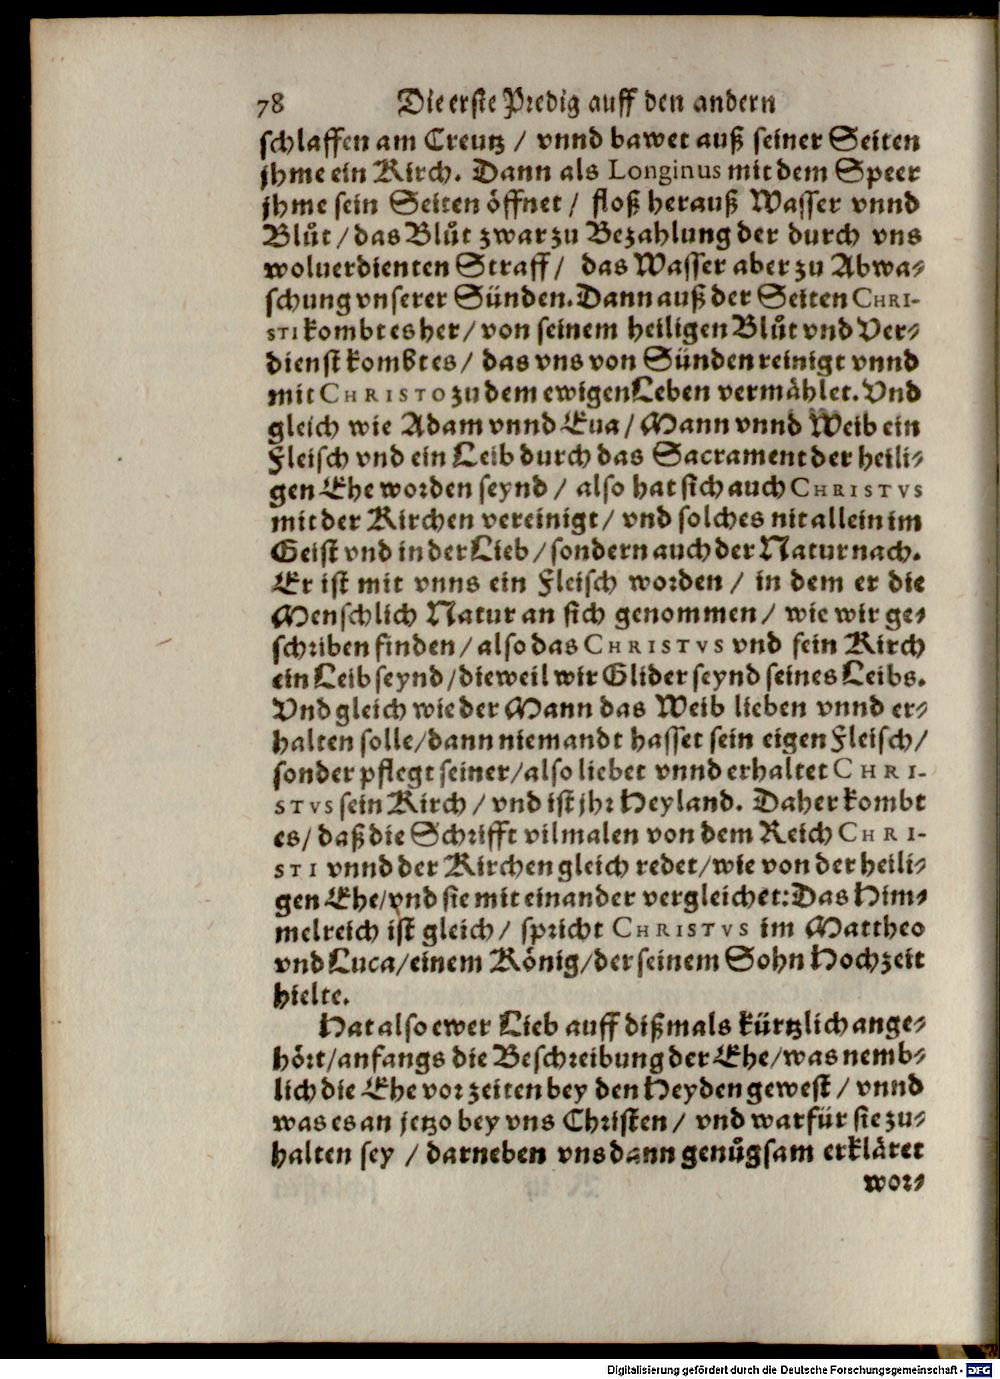 78 Die erste Predig auff den andern
schlaffen am Creutz / vnnd bawet auß seiner Seiten
jhme ein Kirch. Dann als Longinus mit dem Speer
jhme sein Seiten öffnet / floß herauß Wasser vnnd
Blůt / das Blůt zwar zu Bezahlung der durch vns
woluerdienten Straff / das Wasser aber zu Abwa-
schung vnserer Sünden. Dann auß der Seiten CHRI-
STI kombt es her / von seinem heiligen Blůt vnd Ver-
dienst kombt es / das vns von Sünden reinigt vnnd
mit CHRISTO zu dem ewigen Leben vermählet. Vnd
gleich wie Adam vnnd Eua / Mann vnnd Weib ein
Fleisch vnd ein Leib durch das Sacrament der heili-
gen Ehe worden seynd / also hat sich auch CHRISTVS
mit der Kirchen vereinigt / vnd solches nit allein im
Geist vnd in der Lieb / sondern auch der Natur nach.
Er ist mit vnns ein Fleisch worden / in dem er die
Menschlich Natur an sich genommen / wie wir ge-
schriben finden / also das CHRISTVS vnd sein Kirch
ein Leib seynd / dieweil wir Glider seynd seines Leibs.
Vnd gleich wie der Mann das Weib lieben vnnd er-
halten solle / dann niemandt hasset sein eigen Fleisch /
sonder pflegt seiner / also liebet vnnd erhaltet CHRI-
STVS sein Kirch / vnd ist jhr Heyland. Daher kombt
es / daß die Schrifft vilmalen von dem Reich CHRI-
STI vnnd der Kirchen gleich redet / wie von der heili-
gen Ehe / vnd sie mit einander vergleichet: Das Him-
melreich ist gleich / spricht CHRISTVS im Mattheo
vnd Luca / einem König / der seinem Sohn Hochzeit
hielte.
Hat also ewer Lieb auff dißmals kürtzlich ange-
hört / anfangs die Beschreibung der Ehe / was nemb-
lich die Ehe vor zeiten bey den Heyden gewest / vnnd
was es an jetzo bey vns Christen / vnd warfür sie zu-
halten sey / darneben vns dann genůgsam erkläret
wor-
Digitalisierung gefördert durch die Deutsche Forschungsgemeinschaft - DFG